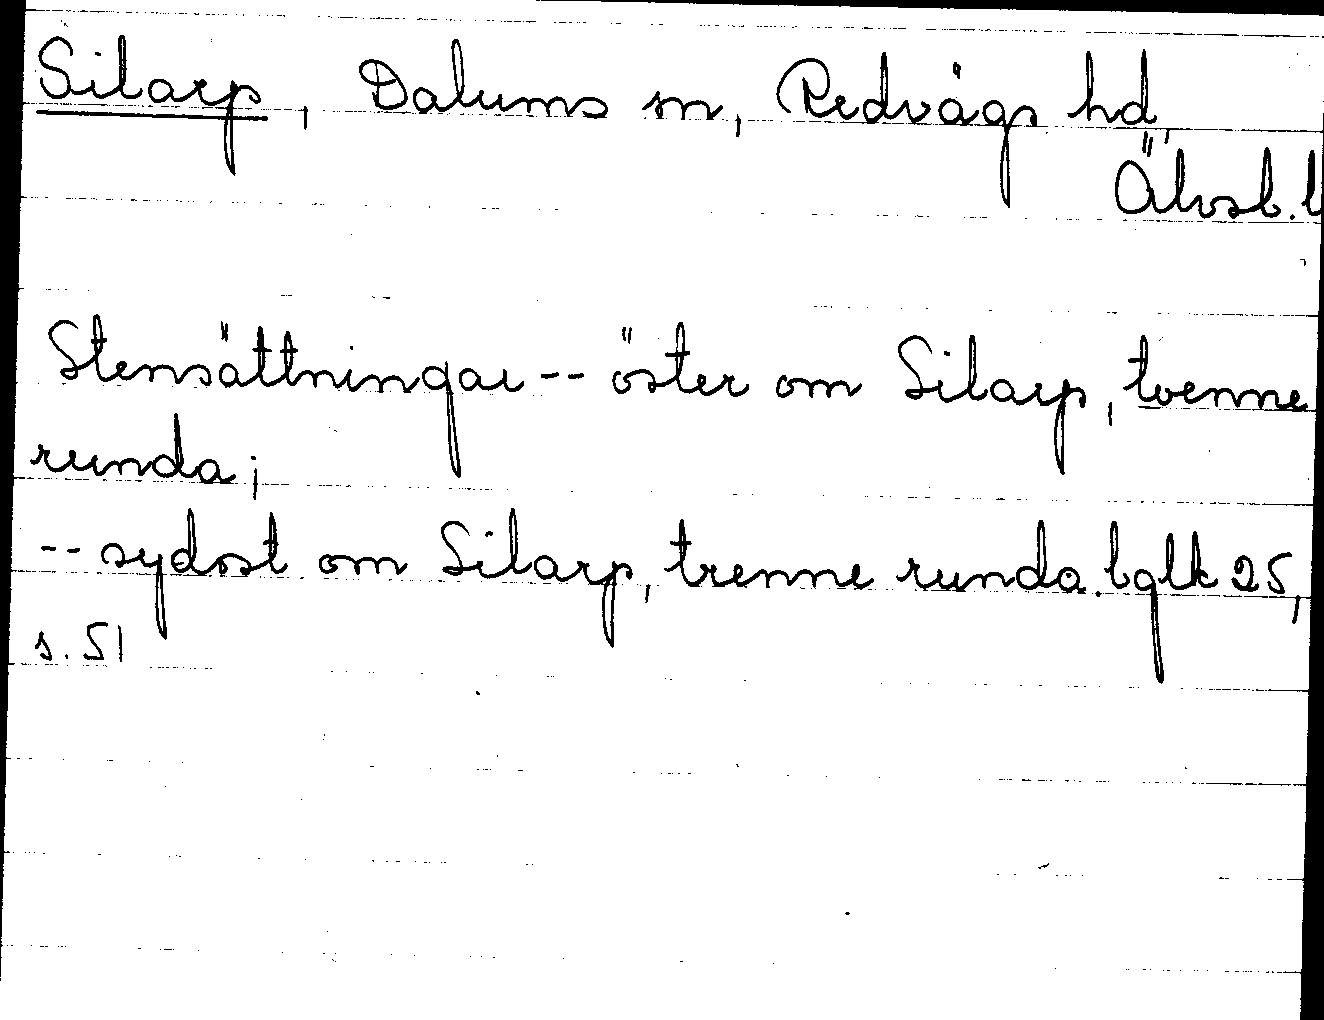 Silarp, Dalums sn, Redvägs hd
Älvsb. l
Stensättningar -- öster om Silarp, tvenne
runda;
-- sydost om Silarp, trenne runda. bglk 25,
s. 51